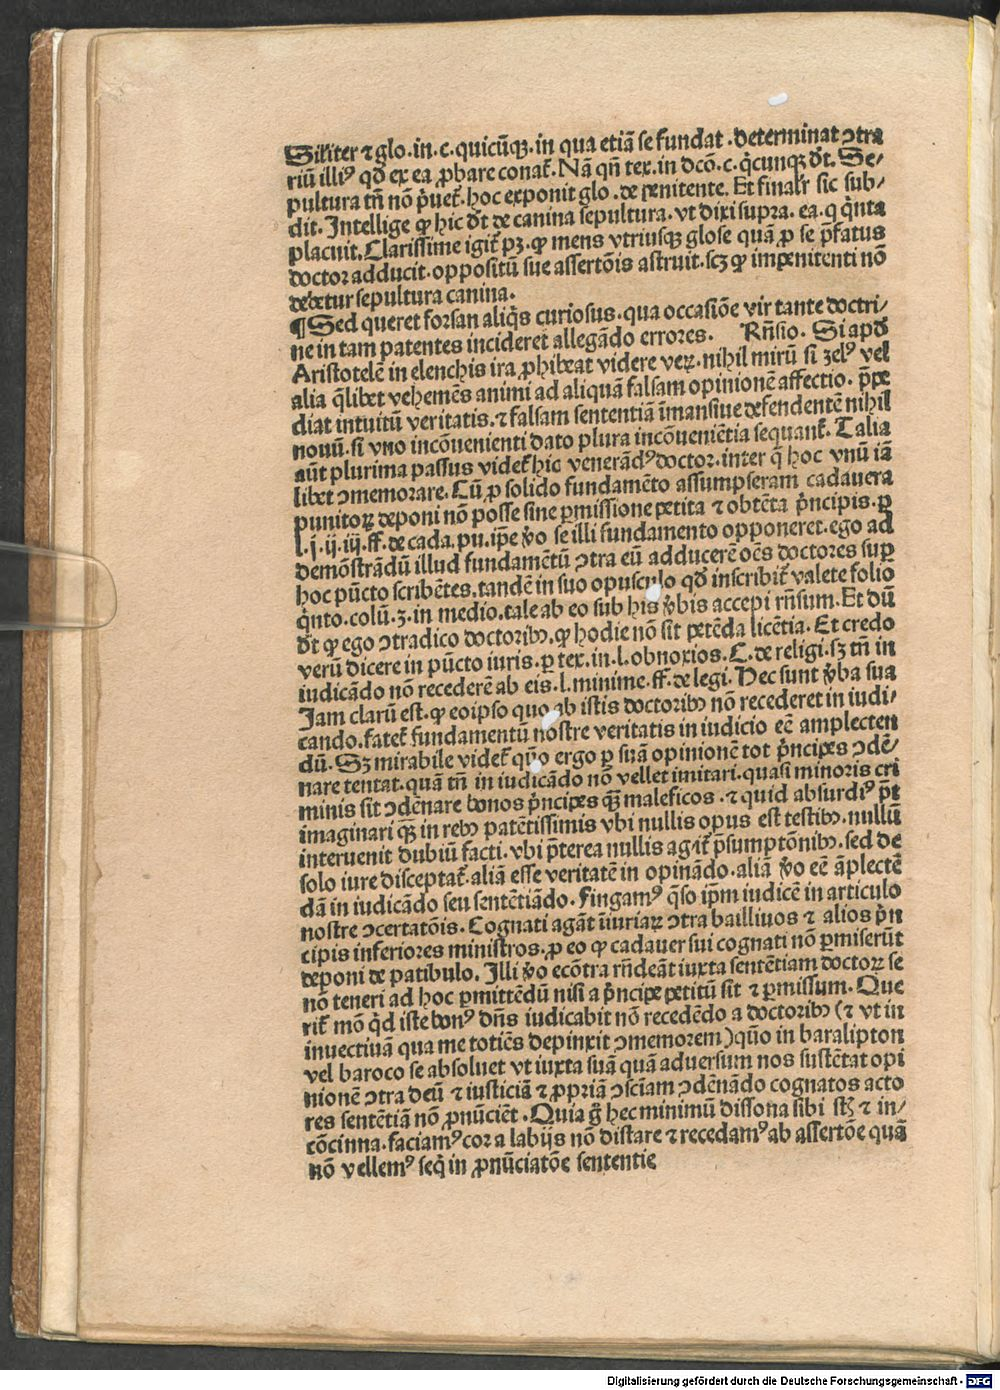 Sil'iter ⁊ glo. in. c. quicūqꝫ. in qua etiā se fundat. determinat ꝯtra
riū illi⁹ qđ ex ea ꝓbare conat͛. Nā qñ tex. in dcō. c. q̇cunqꝫ dr̄. Se-
pultura tn̄ nō p̄uet͛. hoc exponit glo. de penitente. Et finalr̄ sic sub-
dit. Intellige ꝙ hic dr̄ de canina sepultura. vt dixi supra. ea. q q̇nta
placuit. Clarissime igit͛ pꝫ. ꝙ mens vtriusqꝫ glose quā ꝓ se p̄fatus
doctor adducit. oppositū sue assertōis astruit. scꝫ ꝙ impenitenti nō
debetur sepultura canina.
¶ Sed queret forsan aliq̇s curiosus. qua occasiōe vir tante doctri-
ne in tam patentes incideret allegādo errores. Rn̄sio. Si apđ
Aristotelē in elenchis ira ꝓhibeat videre veꝝ. nihil mirū si zel⁹ vel
alia q̄libet vehemēs animi ad aliquā falsam opinionē affectio. p̄pe
diat intuitū veritatis. ⁊ falsam sententiā īmansiue defendentē nihil
nouū. si vno incōuenienti dato plura incōueniētia sequant͛. Talia
aūt plurima passus videt͛ hic venerād⁹ doctor. inter q̄ hoc vnū iā
libet ꝯmemorare. Cū ꝓ solido fundamēto assumpseram cadauera
punitoꝝ deponi nō posse sine ꝑmissione petita ⁊ obtēta p̄ncipis. ꝑ
l. j. ij. iij. ff. de cada. pu. ip̄e v̊o se illi fundamento opponeret. ego ad
demōstrādū illud fundamētū ꝯtra eū adducerē oēs doctores suꝑ
hoc pūcto scribētes. tandē in suo opusculo qđ inscribit͛ valete folio
q̇nto. colū. 3. in medio. tale ab eo sub his v̊bis accepi rn̄sum. Et dū
dr̄ ꝙ ego ꝯtradico doctoribꝫ. ꝙ hodie nō sit petēda licētia. Et credo
verū dicere in pūcto iuris. ꝑ tex. in. l. obnoxios. C. de religi. sꝫ tn̄ in
iudicādo nō recederē ab eis. l. minime. ff. de legi. Hec sunt v̊ba sua
Jam clarū est. ꝙ eoipso quo ab istis doctoribꝫ nō recederet in iudi-
cando. fatet͛ fundamentū nostre veritatis in iudicio eē amplecten
dū. Sꝫ mirabile videt͛ quō ergo ꝑ suā opinionē tot p̄ncipes ꝯdē-
nare tentat. quā tn̄ in iudicādo nō vellet imitari. quasi minoris cri
minis sit ꝯdēnare bonos p̄ncipes qꝫ̄ maleficos. ⁊ quid absurdi⁹ p̄t
imaginari qꝫ̄ in rebꝫ patētissimis vbi nullis opus est testibꝫ. nullū
interuenit dubiū facti. vbi p̄terea nullis agit͛ p̄sumptōnibꝫ. sed de
solo iure disceptat͛. aliā esse veritatē in opinādo. aliā v̊o eē āplectē
dā in iudicādo seu sentētiādo. Fingam⁹ q̄so ip̄m iudicē in articulo
nostre ꝯcertatōis. Cognati agāt īiuriaꝝ ꝯtra bailliuos ⁊ alios p̄n
cipis inferiores ministros. ꝓ eo ꝙ cadauer sui cognati nō ꝑmiserūt
deponi de patibulo. Illi v̊o ecōtra rn̄deāt iuxta sentētiam doctoꝝ se
nō teneri ad hoc ꝑmittēdū nisi a p̄ncipe petitū sit ⁊ ꝑmissum. Que
rit͛ mō q̇d iste bon⁹ dn̄s iudicabit nō recedēdo a doctoribꝫ (⁊ vt in
inuectiuā qua me totiēs depinxit ꝯmemorem) quō in baralipton
vel baroco se absoluet vt iuxta suā quā aduersum nos sustētat opi
nionē ꝯtra deū ⁊ iusticiā ⁊ ꝓpriā ꝯsciam ꝯdēnādo cognatos acto
res sentētiā nō ꝓnūciēt. Quia g̊ hec minimū dissona sibi st̄ ⁊ in-
cōcinna. faciam⁹ cor a labijs nō distare ⁊ recedam⁹ ab assertōe quā
nō vellem⁹ seq̇ in ꝓnūciatōe sententie
Digitalisierung gefördert durch die Deutsche Forschungsgemeinschaft - DFG